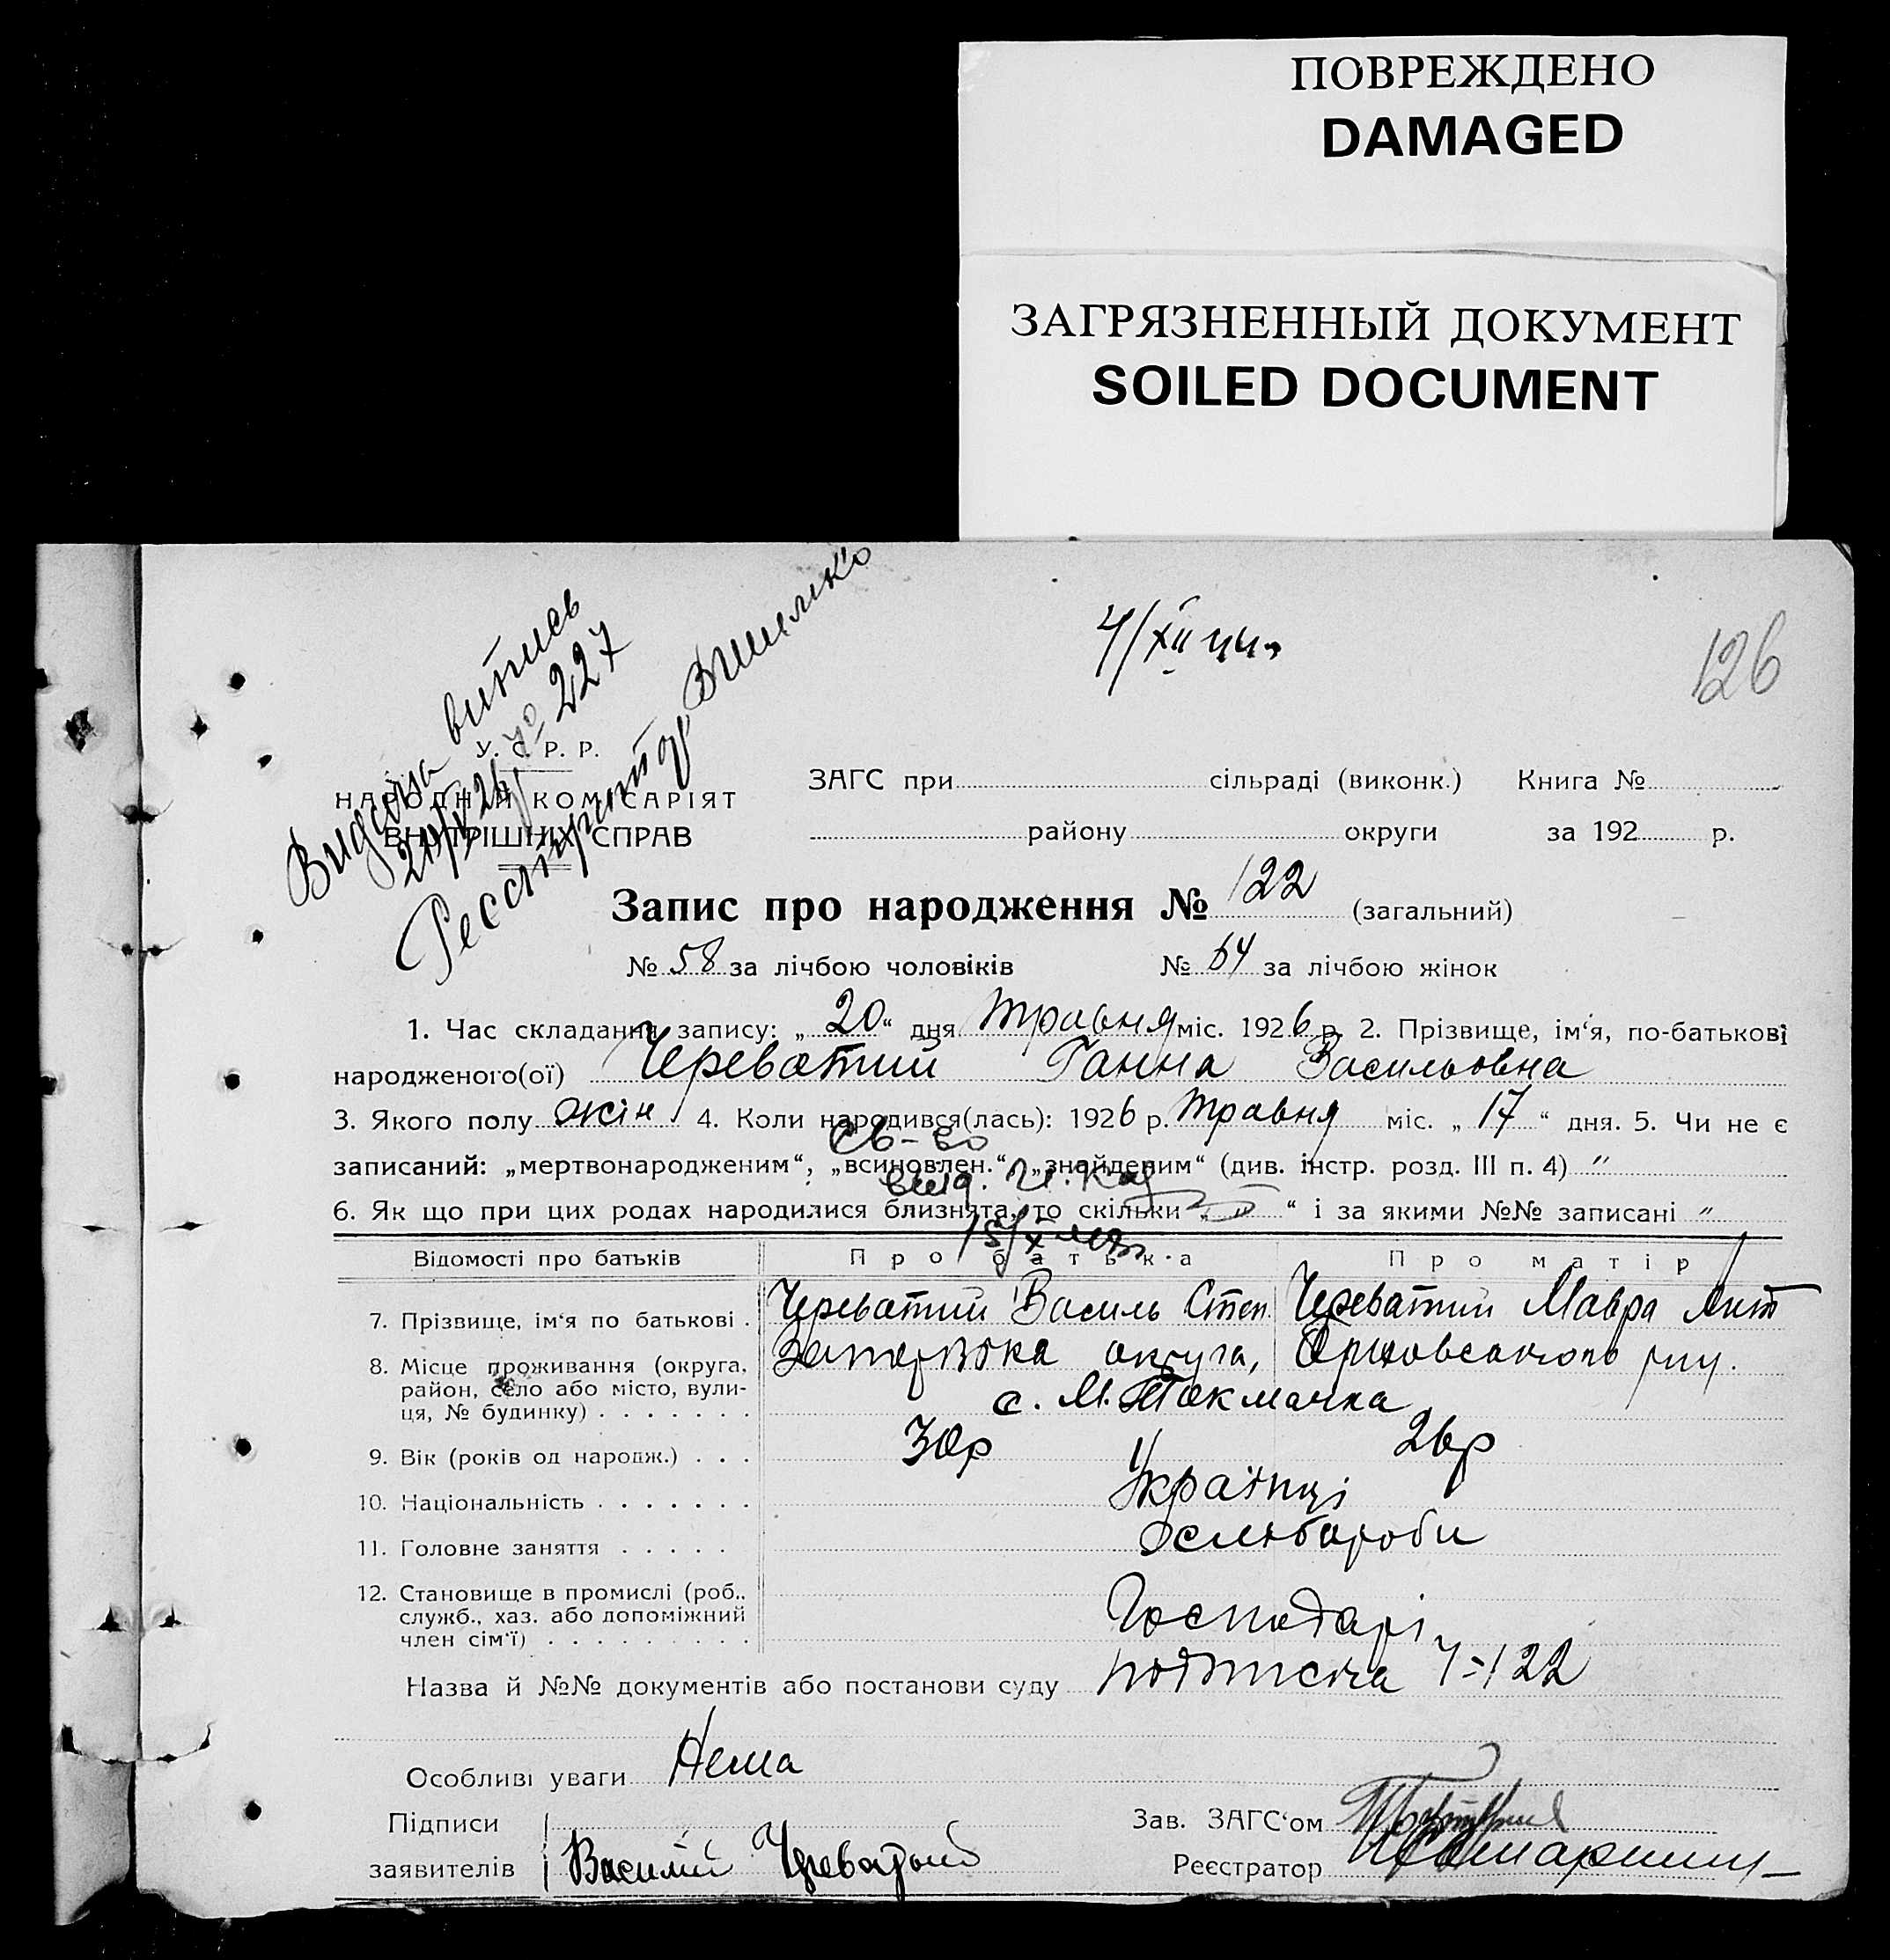 ПОВРЕЖДЕНО
DAMAGED
ЗАГРЯЗНЕННЫЙ ДОКУМЕНТ
SOILED DOCUMENT
126
Видана витись
№ 227
Реєстратор
У. С. Р. Р.
НАРОДНИЙ КОМІСАРІЯТ
ВНУТРІШНІХ СПРАВ
ЗАГС при сільраді (виконк.) Книга №
району округи за 192 р.
Запис про народження № 122 (загальний)
№ 58 за лічбою чоловіків № 64 за лічбою жінок
1. Час складання запису: „ 20 “ дня травня міс. 1926 р. 2. Прізвище, ім‘я, по-батькові
народженого(ої) Череватий Ганна Васильовна
3. Якого полу жін 4. Коли народився(лась): 1926 р. травня міс. „ 17 “ дня. 5. Чи не є
св-во
записаний: „мертвонародженим“, „всиновлен.“, „знайденим“ (див. інстр. розд. III п. 4) "
6. Як що при цих родах народилися близнята, то скільки „ " “ і за якими №№ записані "
Відомості про батьків Про батька Про матір
7. Прізвище, ім‘я по батькові . Череватий Василь Степ. Череватий Мавра
8. Місце проживання (округа, район, село або місто, вулиця, № будинку) . . . . . . . округа,
с. М. Токмачка
9. Вік (років од народж.) . . . 30р 26р
10. Національність . . . . . . . Українці
11. Головне заняття . . . . . Хлібороби
12. Становище в промислі (роб., служб., хаз. або допоміжний член сім‘ї) . . . . . . . . . Господарі
Назва й №№ документів або постанови суду 122
Особливі уваги Нема
Підписи Зав. ЗАГС‘ом
заявителів Василий Череватый Реєстратор